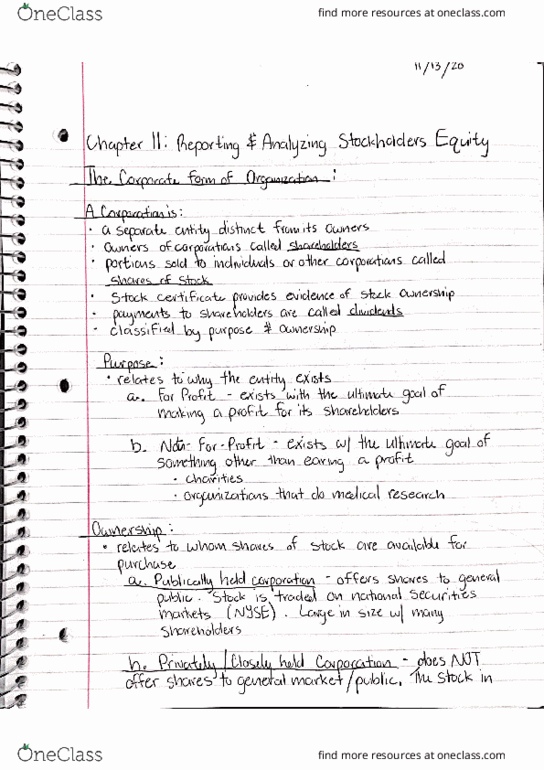 OneClass
find more resources at oneclass.com
11/13/20
Chapter 11: Reporting & Analyzing Stockholders Equity
The Corporate form of Organization:
A Corporation is:
• a separate entity distinct from its owners
• Owners of corporations called shareholders
• portions sold to individuals or other corporations called
shares of stock
• Stock certificate provides evidence of stock ownership
• payments to shareholders are called dividends
• classified by purpose & ownership
Purpose:
• relates to why the entity exists
a. For Profit - exists with the ultimate goal of
making a profit for its shareholders
b. Not-For-Profit - exists w/ the ultimate goal of
something other than earing a profit
• charities
• organizations that do medical research
Ownership:
• relates to whom shares of stock are available for
purchase
a. Publically held corporation - offers shares to general
public. Stock is traded on national securities
markets (NYSE). Large in size w/ many
shareholders
b. Privately/Closely held Corporation - does NOT
offer shares to general market/public. The stock in
OneClass
find more resources at oneclass.com